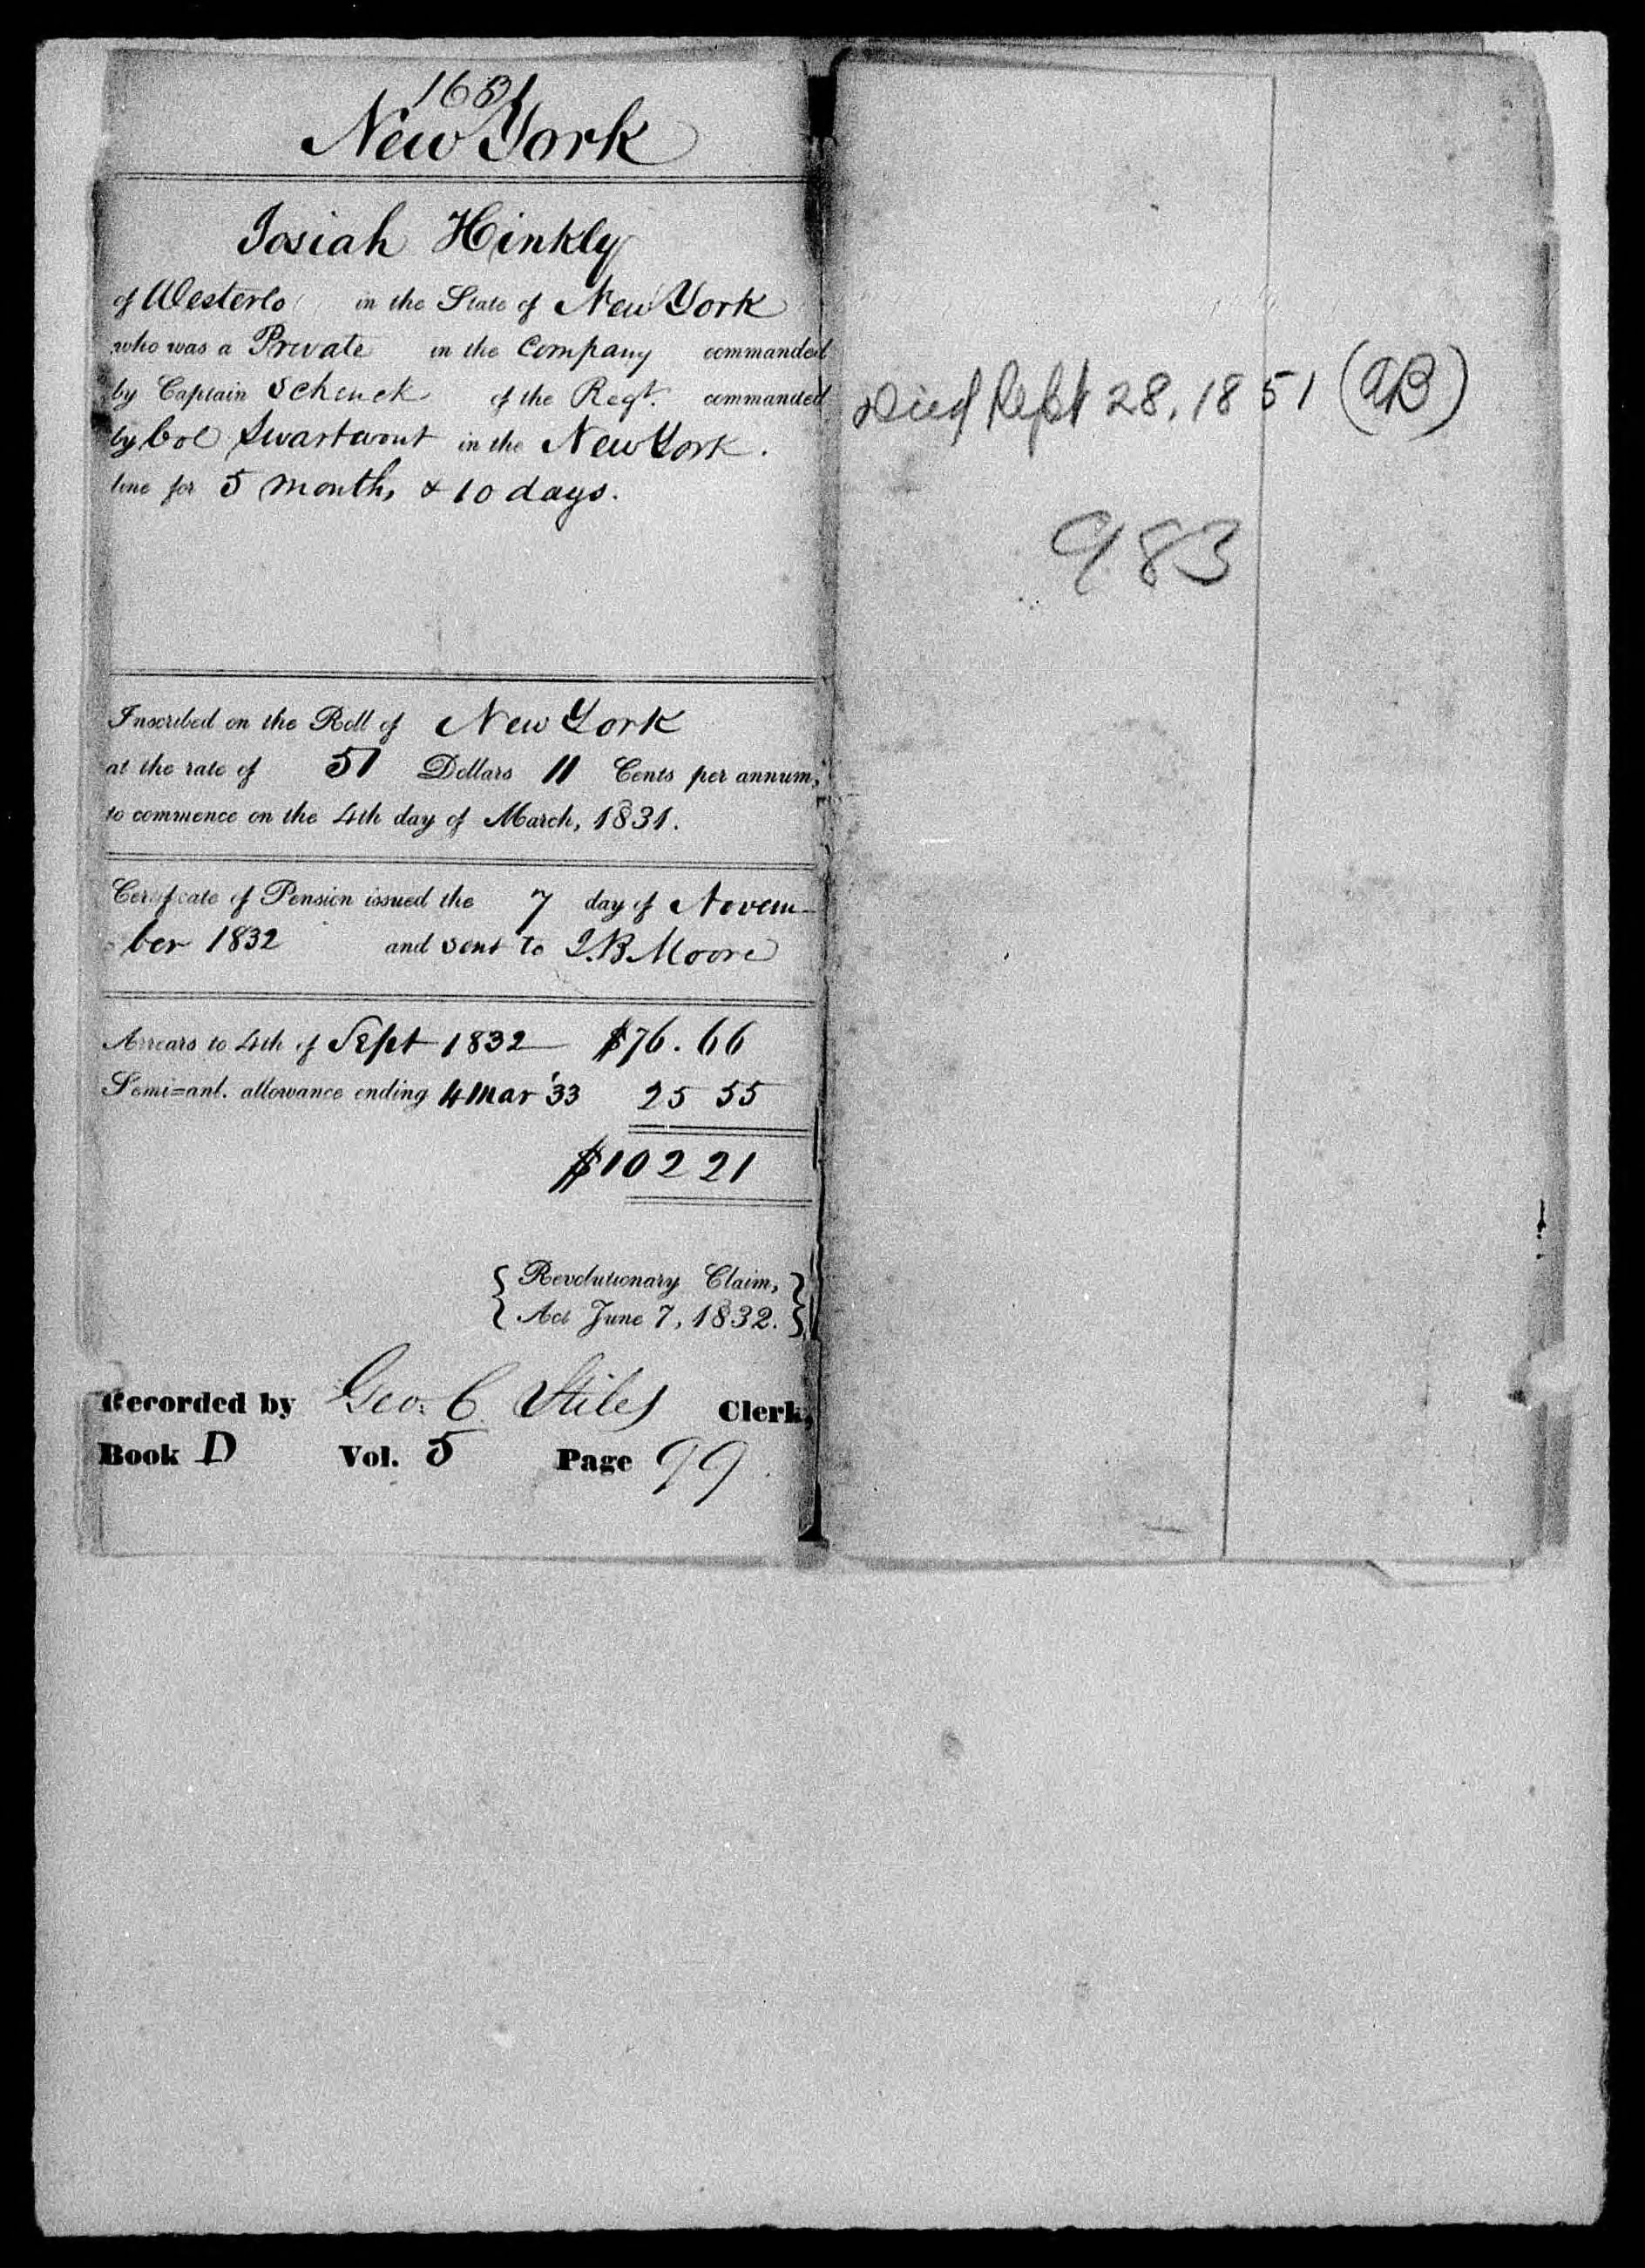 1631
New York
Josiah Hinkly
of Westerlo in the State of New York
who was a Private in the Company commanded
by Captain Schenck of the Regt. commanded
by Col Swartwout in the New York.
line for 5 months & 10 days.
Inscribed on the Roll of New York
at the rate of 51 Dollars 11 Cents per annum,
to commence on the 4th day of March, 1831.
Certificate of Pension issued the 7 day of Novem-
ber 1832 and sent to J.B. Moore
Arrears to 4th of Sept 1832 $76.66
Semi-anl. allowance ending 4 Mar '33 25 55
$102 21
{ Revolutionary Claim, }
{ Act June 7, 1832. }
Recorded by Geo. C. Stiles Clerk,
Book D Vol. 5 Page 99
Died Sept 28, 1851 (AB)
983